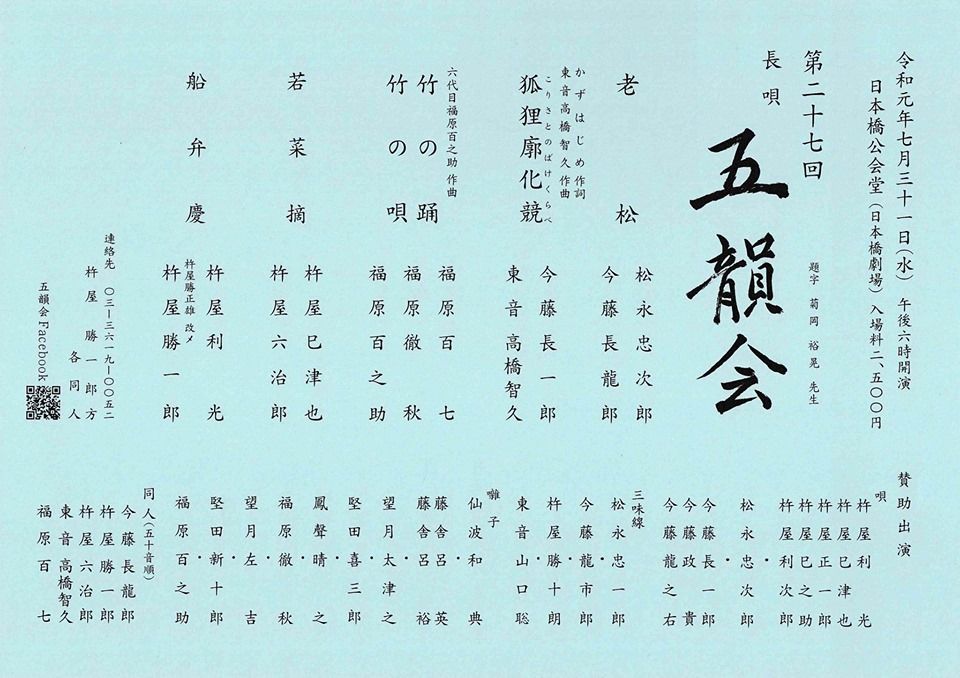 令和元年七月三十一日（水） 午後六時開演
日本橋公会堂（日本橋劇場） 入場料二、五〇〇円
第二十七回
長唄
五韻会
題字 菊岡裕晃 先生
老松
松永忠次郎
今藤長龍郎
かずはじめ 作詞
東音高橋智久 作曲
こりさとのばけくらべ
狐狸廓化競
今藤長一郎
東音高橋智久
六代目福原百之助 作曲
竹の踊
竹の唄
福原百七
福原徹秋
福原百之助
若菜摘
杵屋巳津也
杵屋六治郎
船弁慶
杵屋利光
杵屋勝正雄 改メ
杵屋勝一郎
連絡先 〇三ー三六一九ー〇〇五二
杵屋勝一郎方
各同人
五韻会 Facebook
賛助出演
唄
杵屋利光
杵屋巳津也
杵屋正一郎
杵屋巳之助
杵屋利次郎・
松永忠次郎・
今藤長一郎
今藤政貴
今藤龍之右
三味線
松永忠一郎・
今藤龍市郎・
杵屋勝十朗・
東音山口聡
囃子
仙波和典・
藤舎呂英
藤舎呂裕・
望月太津之・
堅田喜三郎・
鳳聲晴之・
福原徹秋・
望月左吉・
堅田新十郎・
福原百之助
同人（五十音順）
今藤長龍郎
杵屋勝一郎
杵屋六治郎
東音高橋智久
福原百七